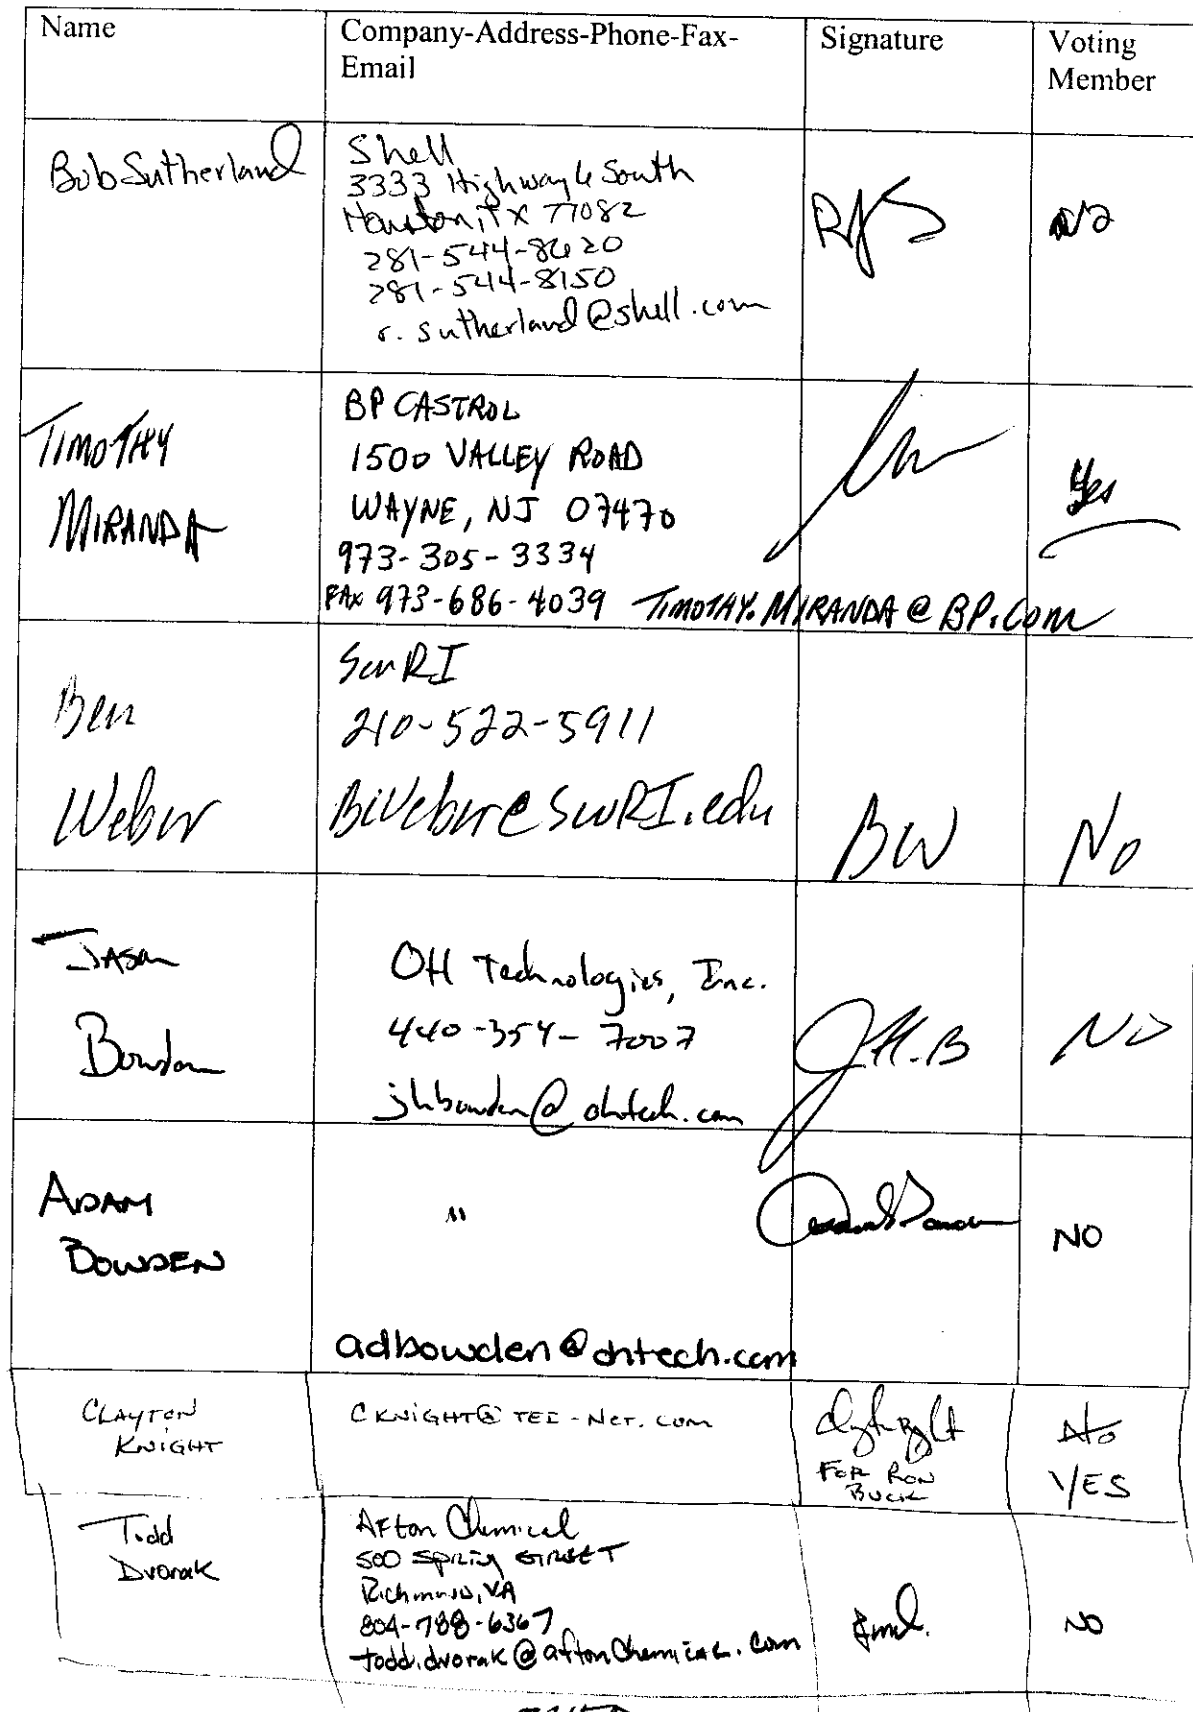 Name
Company-Address-Phone-Fax-
Email
Signature
Voting
Member
Bob Sutherland
Shell
3333 Highway 6 South
Houston, TX 77082
281-544-8620
281-544-8150
r.sutherland@shell.com
RJS
No
TIMOTHY
MIRANDA
BP CASTROL
1500 VALLEY ROAD
WAYNE, NJ 07470
973-305-3334
FAX 973-686-4039 TIMOTHY.MIRANDA@BP.COM
Yes
Ben
Weber
SwRI
210-522-5911
BWeber@SwRI.edu
BW
No
JASON
Bowden
OH Technologies, Inc.
440-354-7007
jhbowden@ohtech.com
JH.B
NO
ADAM
BOWDEN
"
adbowden@ohtech.com
NO
CLAYTON
KNIGHT
CKNIGHT@TEI-NET.COM
FOR RON
BUCK
No
YES
Todd
Dvorak
AFton Chemical
500 Spring STREET
Richmond, VA
804-788-6367
todd.dvorak@aftonChemical.com
NO